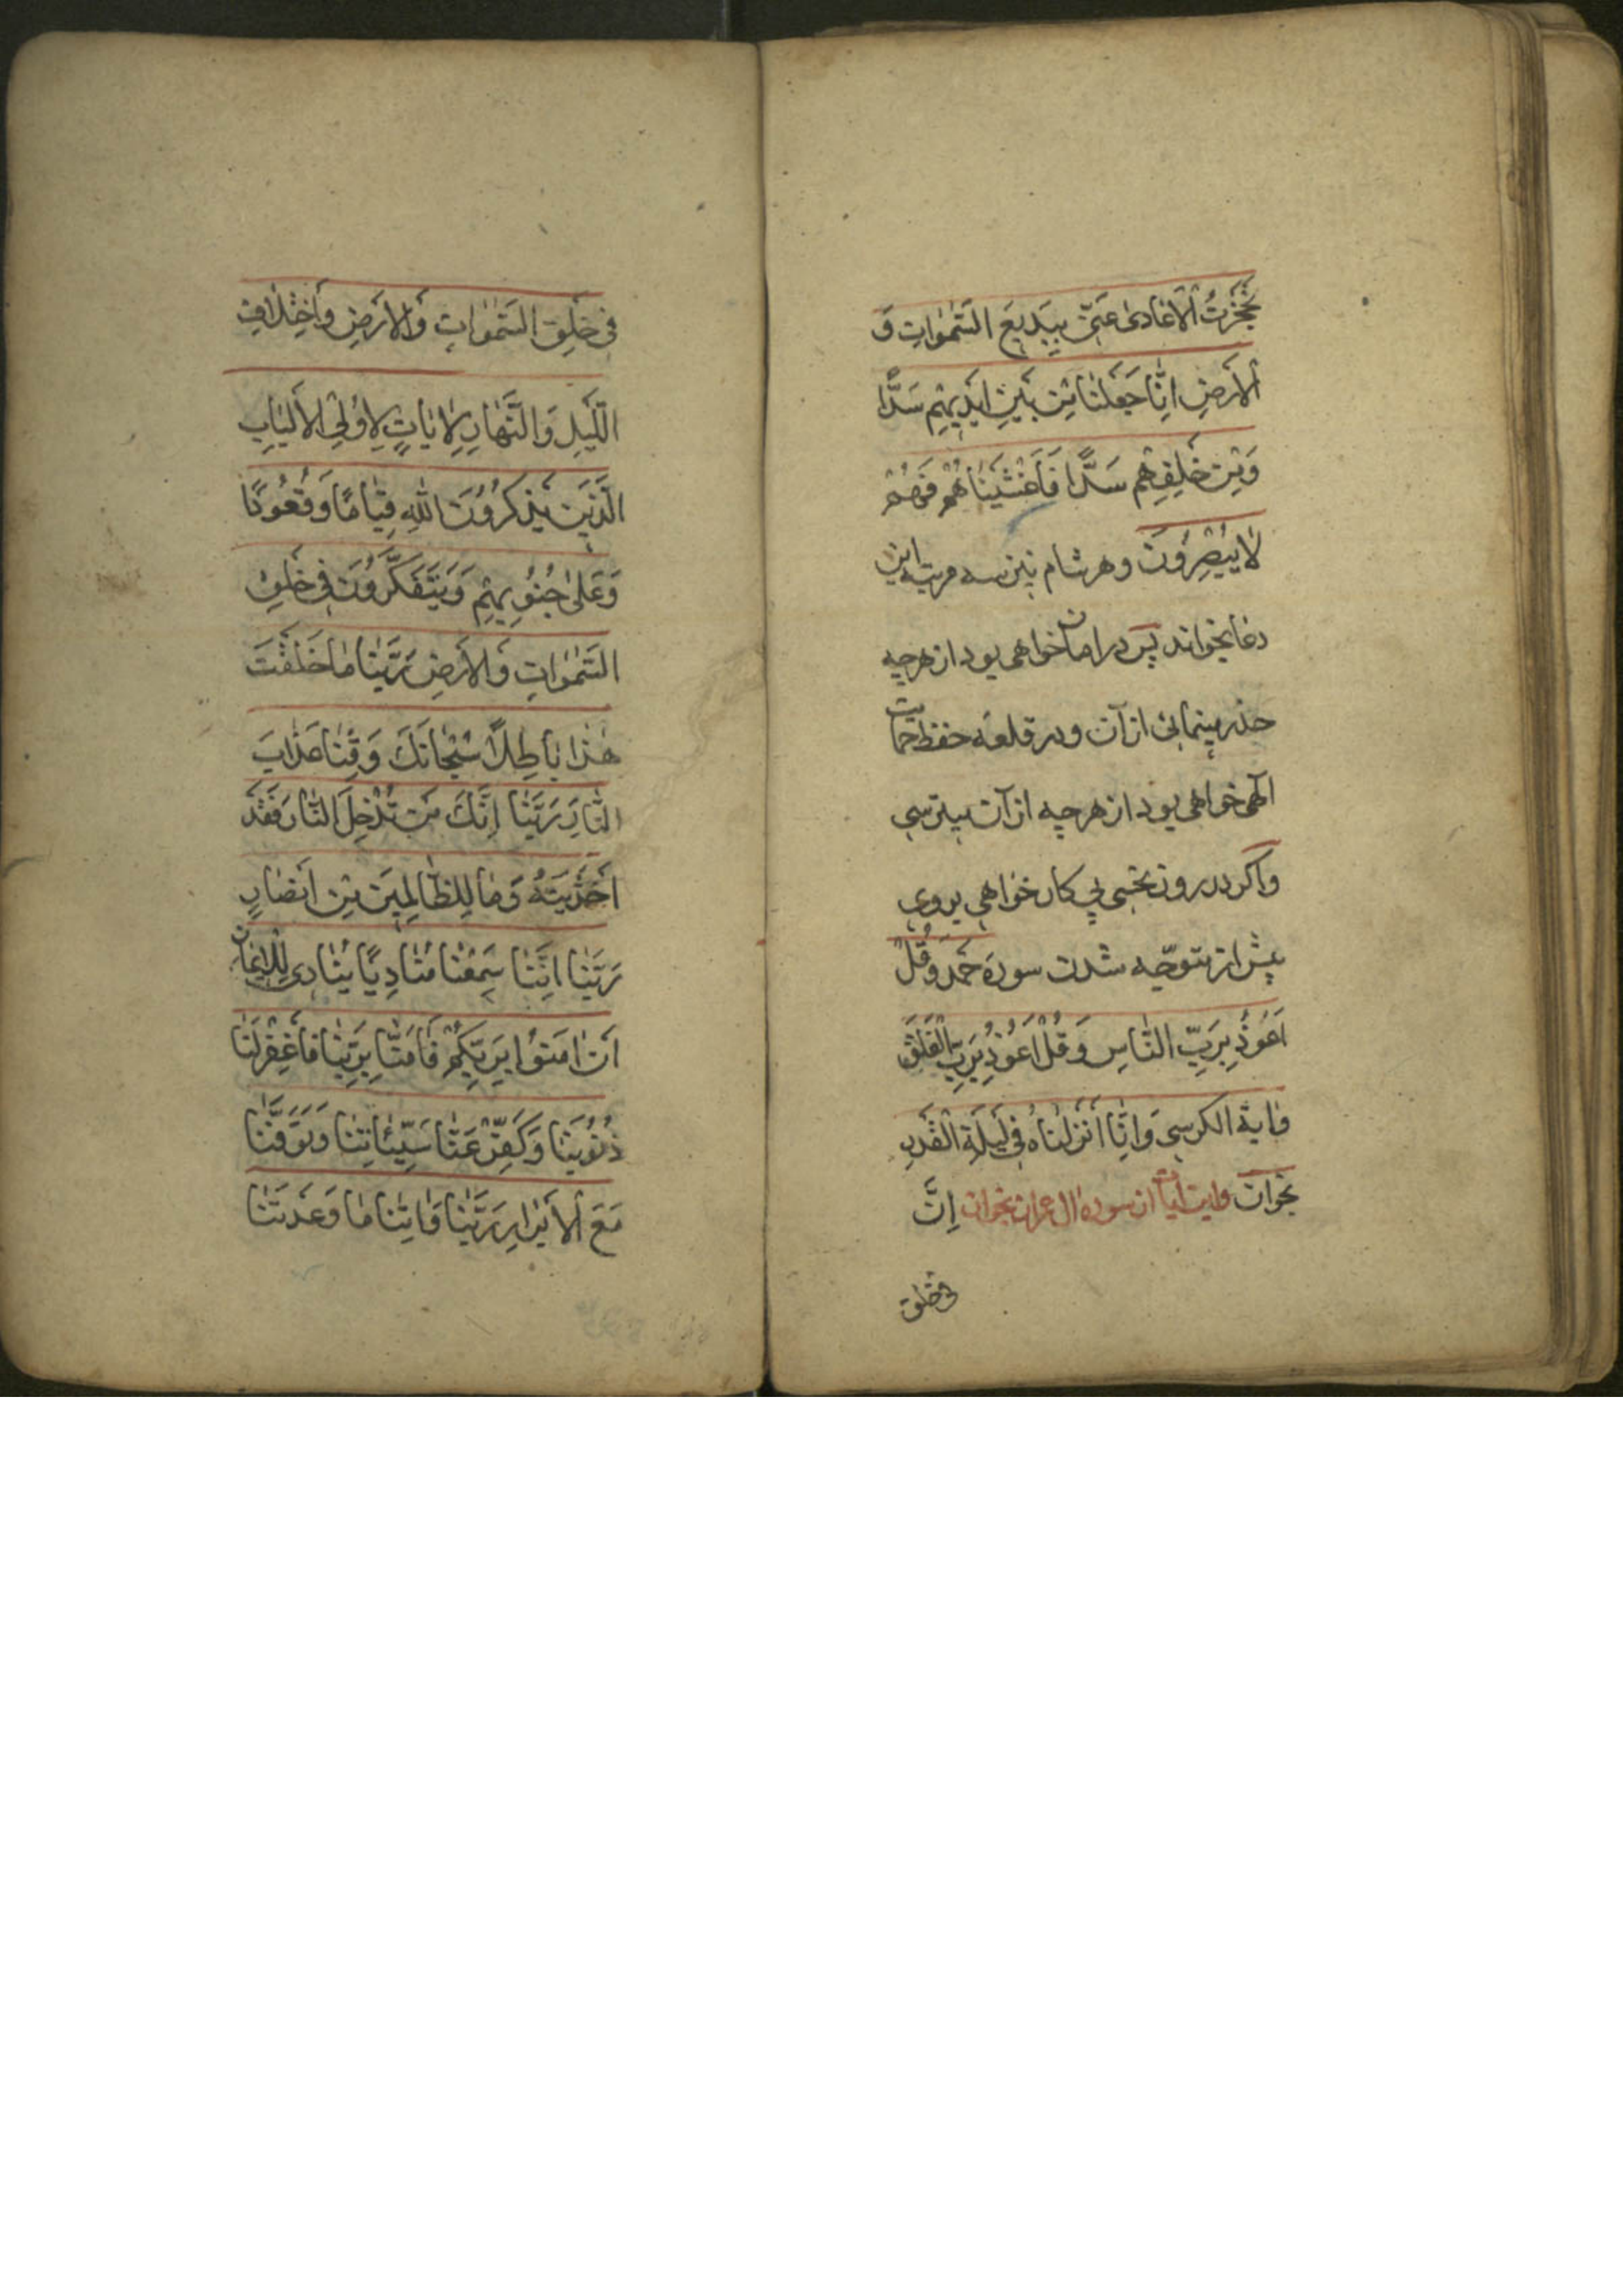 حَجَزْتُ الْاَعٰادی عَنّی بِبَدیعِ السَّمٰوٰاتِ وَ
الْاَرْضِ اِنّٰا جَعَلْنٰا مِنْ بَیْنِ اَیْدیهِمْ سَدًّا
وَمِنْ خَلْفِهِمْ سَدًّا فَاَغْشَیْنٰاهُمْ فَهُمْ
لٰا یُبْصِرُونَ وهر شام نیز سه مرتبه این
دعا بخواند پس در امان خواهی بود از هرچه
حذر مینمائی از آن و در قلعه حفظ حمایت
آلهی خواهی بود از هرچه از آن میترسی
واکر در روز نحسی پی کار خواهی بروی
پیش از متوجّه شدن سورهٔ حَمْدْ وَقُلْ
اَعُوذُ بِرَبِّ النّٰاسِ وَقُلْ اَعُوذُ بِرَبِّ الْفَلَقْ
وٰایة الکرسی وَ اِنّٰا اَنْزَلْنٰاهُ فی لَیْلَةِ الْقَدْرِ
بخوان واین ایات از سوره اٰل عمران بخوان اِنَّ
فی خلق
فی خَلْقِ السَّمٰوٰاتِ وَالْاَرْضِ وَاخْتِلٰافِ
اللَّیْلِ وَالنَّهٰارِ لَاٰیٰاتٍ لِاُولِی الْاَلْبٰابِ
الَّذینَ یَذْکُرُونَ اللّٰهِ قِیٰامًا وَقُعُودًا
وَعَلٰی جُنُوبِهِمْ وَیَتَفَکَّرُونَ فی خَلْقِ
السَّمٰوٰاتِ وَالْاَرْضِ رَبَّنٰا مٰا خَلَقْتَ
هٰذٰا بٰاطِلًا سُبْحٰانَكَ وَقِنٰا عَذٰابَ
النّٰارِ رَبَّنٰا اِنَّكَ مَنْ تُدْخِلِ النّٰارَ فَقَدْ
اَخْزَیْتَهُ وَمٰا لِلظّٰالِمینَ مِنْ اَنْصٰارٍ
رَبَّنٰا اِنَّنٰا سَمِعْنٰا مُنٰادِیًا یُنٰادی لِلْایمٰانِ
اَنْ اٰمِنُوا بِرَبِّکُمْ فَاٰمَنّٰا رَبَّنٰا فَاغْفِرْ لَنٰا
ذُنُوبَنٰا وَکَفِّرْ عَنّٰا سَیِّئٰاتِنٰا وَتَوَفَّنٰا
مَعَ الْاَبْرٰارِ رَبَّنٰا وَاٰتِنٰا مٰا وَعَدْتَنٰا